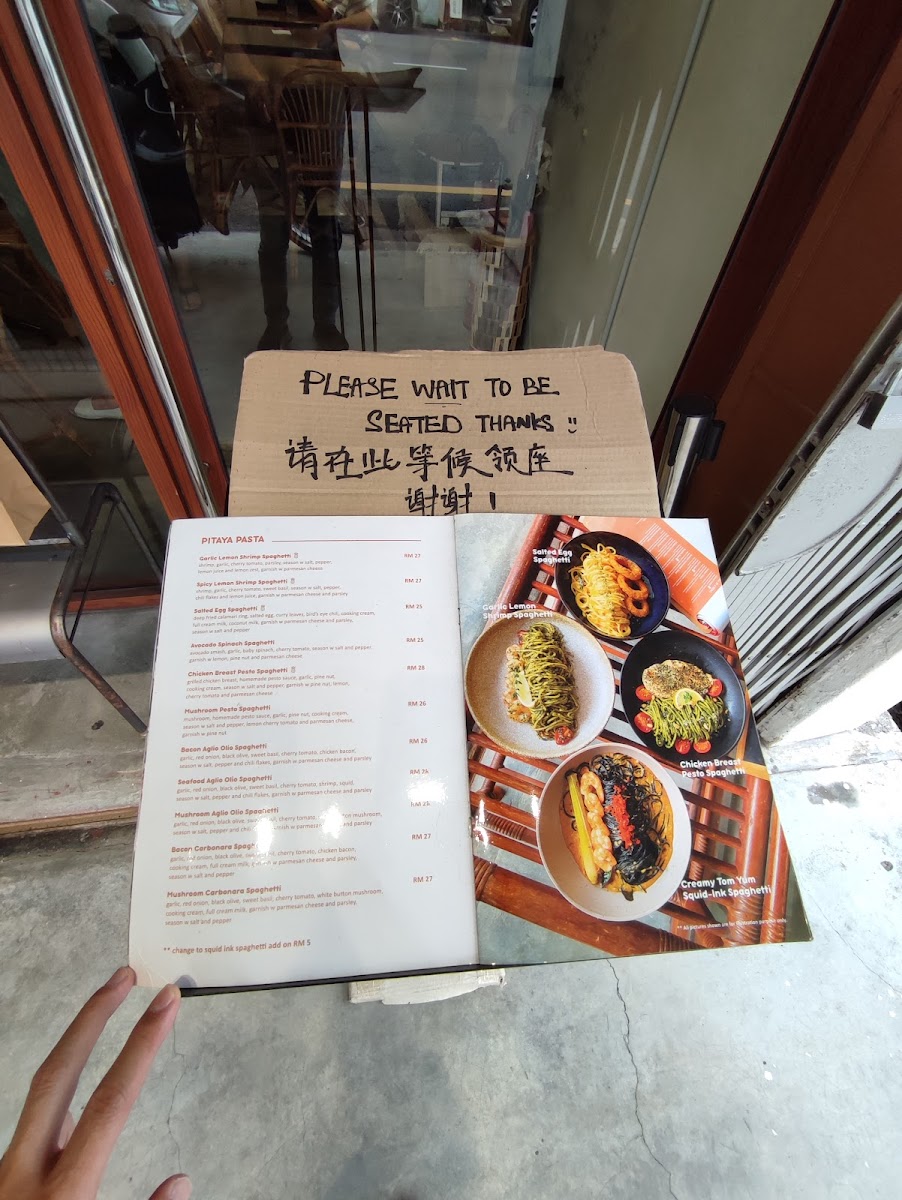 PLEASE WAIT TO BE
SEATED THANKS
请在此等候领座
谢谢!
PITAYA PASTA
Garlic Lemon Shrimp Spaghetti RM 27
shrimp, garlic, cherry tomato, parsley, season w salt, pepper,
lemon juice and lemon zest, garnish w parmesan cheese
Spicy Lemon Shrimp Spaghetti RM 27
shrimp, garlic, cherry tomato, sweet basil, season w salt, pepper,
chili flakes and lemon juice, garnish w parmesan cheese and parsley
Salted Egg Spaghetti RM 25
deep fried calamari ring, salted egg, curry leaves, bird's eye chili, cooking cream,
full cream milk, coconut milk, garnish w parmesan cheese and parsley,
season w salt and pepper
Avocado Spinach Spaghetti RM 25
avocado smash, garlic, baby spinach, cherry tomato, season w salt and pepper,
garnish w lemon, pine nut and parmesan cheese
Chicken Breast Pesto Spaghetti RM 28
grilled chicken breast, homemade pesto sauce, garlic, pine nut,
cooking cream, season w salt and pepper, garnish w pine nut, lemon,
cherry tomato and parmesan cheese
Mushroom Pesto Spaghetti RM 26
mushroom, homemade pesto sauce, garlic, pine nut, cooking cream,
season w salt and pepper, lemon cherry tomato and parmesan cheese,
garnish w pine nut
Bacon Aglio Olio Spaghetti RM 26
garlic, red onion, black olive, sweet basil, cherry tomato, chicken bacon,
season w salt, pepper and chili flakes, garnish w parmesan cheese and parsley
Seafood Aglio Olio Spaghetti RM
garlic, red onion, black olive, sweet basil, cherry tomato, shrimp, squid,
season w salt, pepper and chili flakes, garnish w parmesan cheese and parsley
Mushroom Aglio Olio Spaghetti RM
garlic, red onion, black olive, cherry tomato, button mushroom,
season w salt, pepper and garnish w parmesan cheese and parsley
Bacon Carbonara Spaghetti RM 27
garlic, red onion, black olive, cherry tomato, chicken bacon,
cooking cream, full cream milk, garnish w parmesan cheese and parsley,
season w salt and pepper
Mushroom Carbonara Spaghetti RM 27
garlic, red onion, black olive, sweet basil, cherry tomato, white button mushroom,
cooking cream, full cream milk, garnish w parmesan cheese and parsley,
season w salt and pepper
** change to squid ink spaghetti add on RM 5
Salted Egg
Spaghetti
Garlic Lemon
Shrimp Spaghetti
Chicken Breast
Pesto Spaghetti
Creamy Tom Yum
Squid-Ink Spaghetti
** All pictures shown are for illustration purpose only.